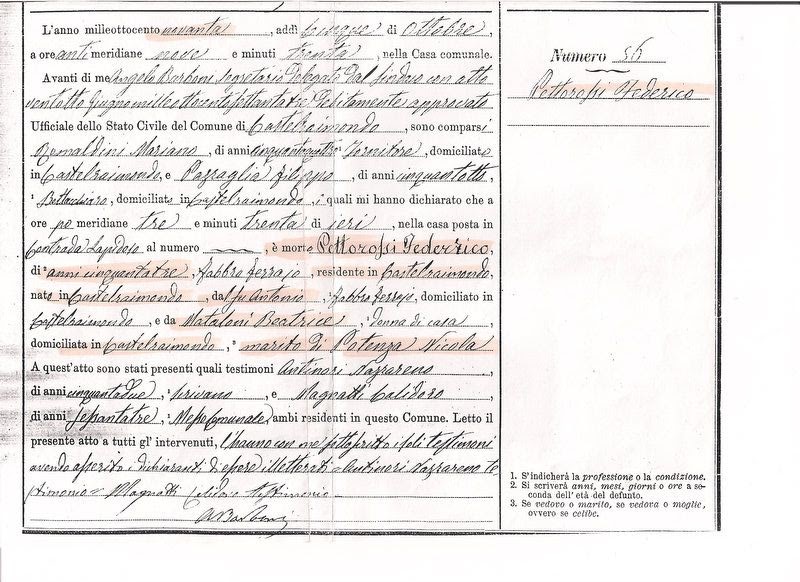 L'anno milleottocento novanta, addì Cinque di Ottobre,
a ore antimeridiane nove e minuti trenta, nella Casa comunale.
Avanti di me Angelo Barboni, Segretario Delegato dal Sindaco con atto
ventotto Giugno milleottocentosettantatre debitamente approvato
Ufficiale dello Stato Civile del Comune di Castelraimondo, sono comparsi
Romaldini Mariano, di anni cinquantaquattro Fornitore, domiciliato
in Castelraimondo, e Pazzaglia Filippo, di anni cinquantotto,
domiciliato in Castelraimondo, i quali mi hanno dichiarato che a
ore po meridiane tre e minuti trenta di ieri, nella casa posta in
Contrada Lapidoso al numero, è morto Pettorossi Federico,
di anni cinquantatre, fabbro ferrajo, residente in Castelraimondo,
nato in Castelraimondo, dal fu Antonio, fabbro ferrajo, domiciliato in
Castelraimondo, e da Mataloni Beatrice, donna di casa
domiciliata in Castelraimondo, marito di Potenza Nicola
A quest'atto sono stati presenti quali testimoni Antinori Nazzareno
di anni cinquantadue, scrivano, e Magnatti Calidoro,
di anni sessantatre, Messo Comunale, ambi residenti in questo Comune. Letto il
presente atto a tutti gl' intervenuti, l'hanno con me sottoscritto i soli testimoni
avendo asserito i dichiaranti di essere illetterati = Antinori Nazzareno te-
stimonio = Magnatti Calidoro testimonio
A Barboni
Numero 56
Pettorossi Federico
1. S'indicherà la professione o la condizione.
2. Si scriverà anni, mesi, giorni o ore a se-
conda dell'età del defunto.
3. Se vedovo o marito, se vedova o moglie,
ovvero se celibe.